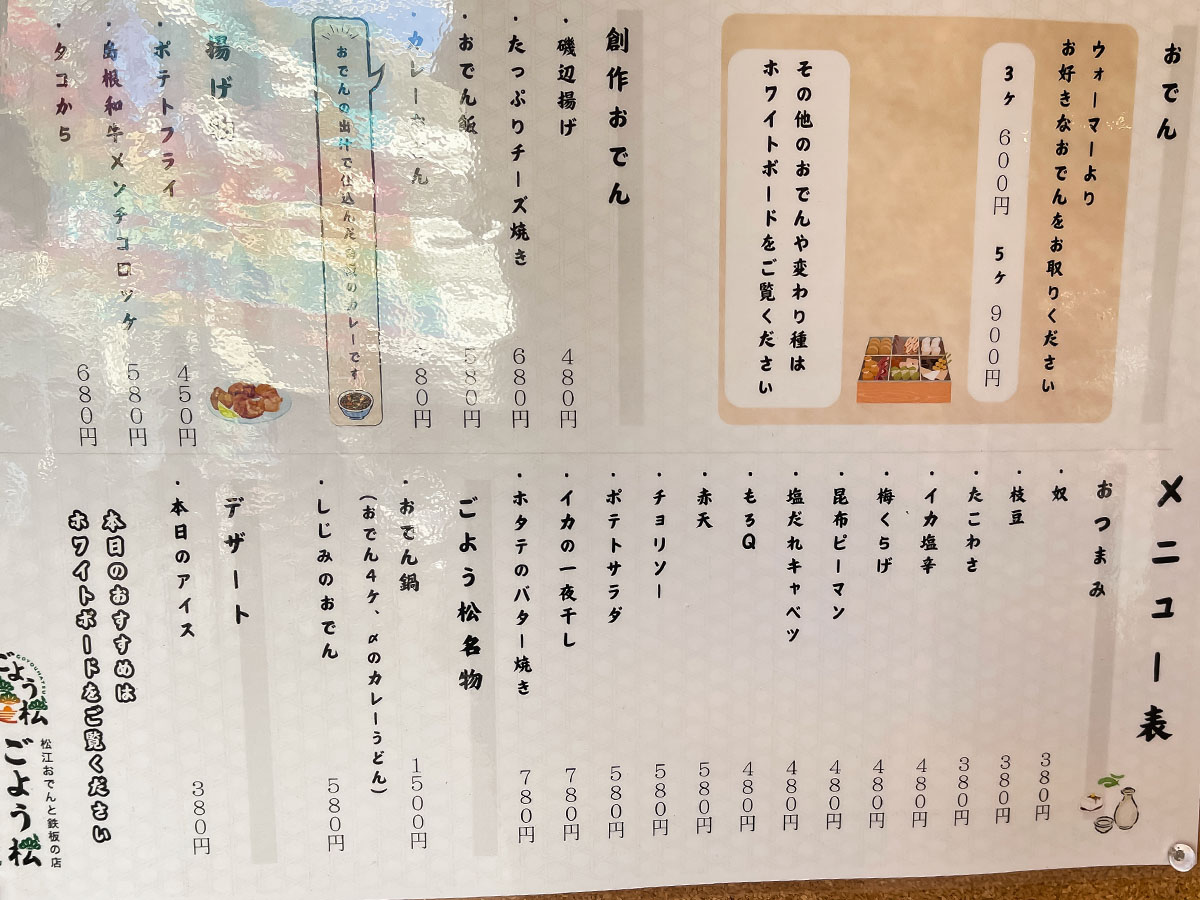 おでん
ウォーマーより
お好きなおでんをお取りください
3ヶ 600円 5ヶ 900円
その他のおでんや変わり種は
ホワイトボードをご覧ください
創作おでん
・磯辺揚げ 480円
・たっぷりチーズ焼き 680円
・おでん飯 580円
・カレーうどん 80円
おでんの出汁で仕込んだ のカレーです
揚げ物
・ポテトフライ 450円
・島根和牛メンチコロッケ 580円
・タコから 680円
メニュー表
おつまみ
・奴 380円
・枝豆 380円
・たこわさ 380円
・イカ塩辛 480円
・梅くらげ 480円
・昆布ピーマン 480円
・塩だれキャベツ 480円
・もろQ 480円
・赤天 580円
・チョリソー 580円
・ポテトサラダ 580円
・イカの一夜干し 780円
・ホタテのバター焼き 780円
ごよう松名物
・おでん鍋 1500円
(おでん4ケ、〆のカレーうどん)
・しじみのおでん 580円
デザート
・本日のアイス 380円
本日のおすすめは
ホワイトボードをご覧ください
ごよう松
GOYOUMATSU
松江おでんと鉄板の店
ごよう松